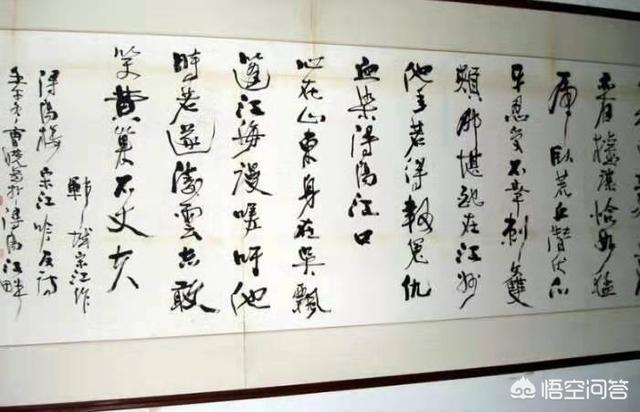 有權謀恰如猛
虎臥荒丘潛伏爪
牙忍受不幸刺文雙
頰那堪配在江州
他年若得報冤仇
血染潯陽江口
心在山東身在吳飄
蓬江海漫嗟吁他
時若遂凌雲志敢
笑黃巢不丈夫
鄆城宋江作
潯陽樓宋江吟反詩
於潯陽江畔
悟空问答